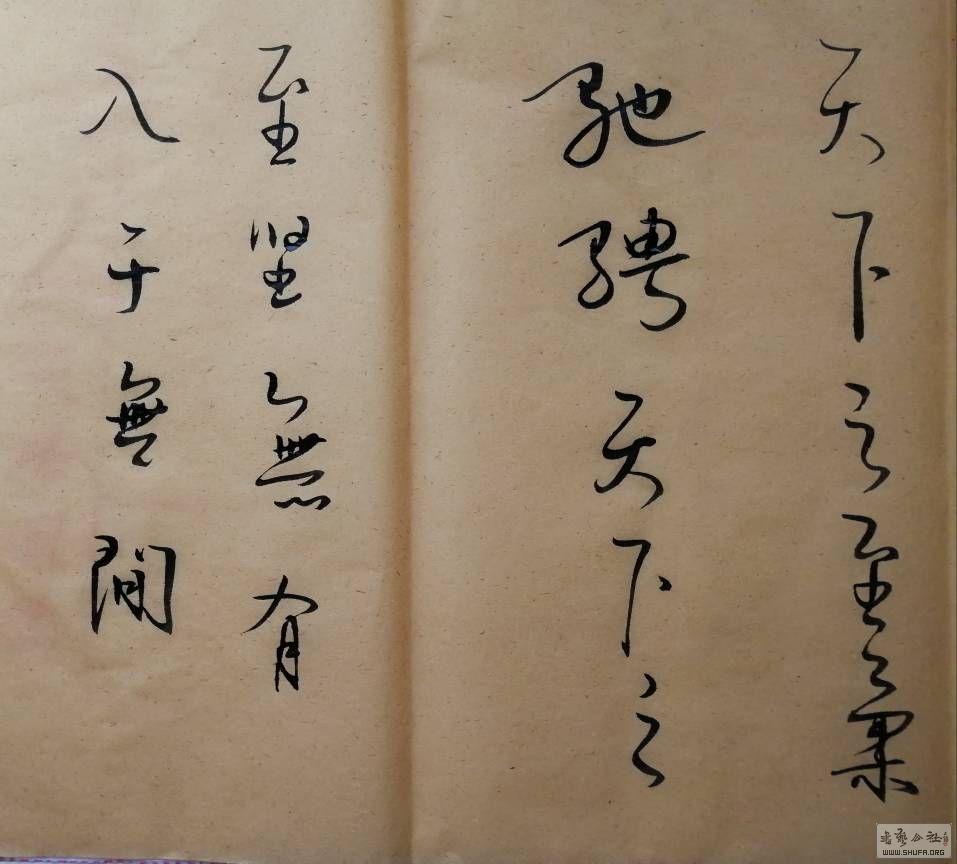 天下之至柔
驰骋天下之
至坚無有
入于無間
书艺公社
WWW.SHUFA.ORG